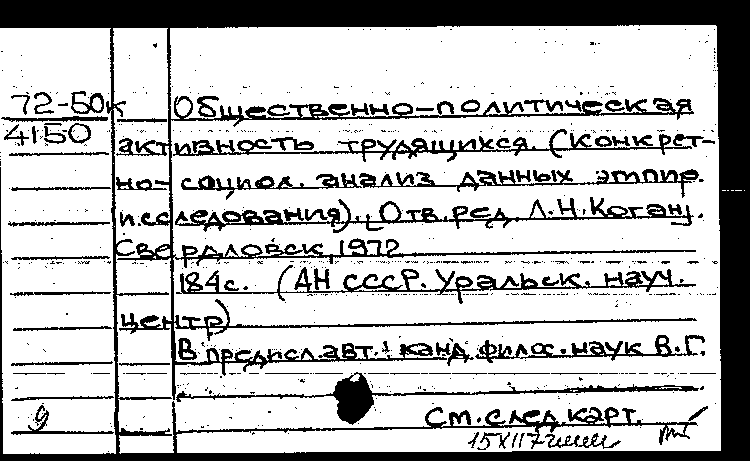 72-50к Общественно-политическая
4150
активность трудящихся. (Конкрет-
но-социол. анализ данных эмпир.
исследования). [Отв. ред. Л.Н. Коган].
Свердловск, 1972
184 с. (АН СССР. Уральск. науч.
центр).
В предисл. авт.: канд. филос. наук В.Г.
9 См. след. карт.